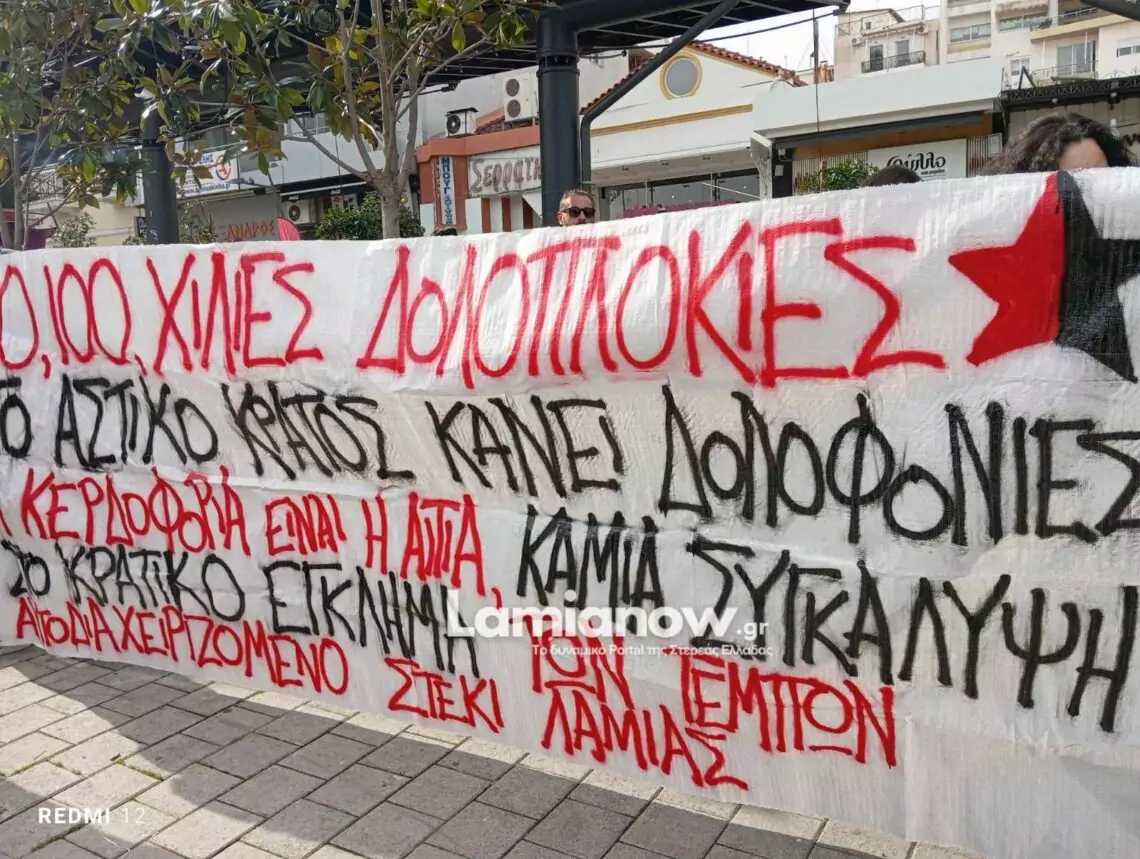 0, 100, ΧΙΛΙΕΣ ΔΟΛΟΠΛΟΚΙΕΣ
ΤΟ ΑΣΤΙΚΟ ΚΡΑΤΟΣ ΚΑΝΕΙ ΔΟΛΟΦΟΝΙΕΣ
Η ΚΕΡΔΟΦΟΡΙΑ ΕΙΝΑΙ Η ΑΙΤΙΑ, ΚΑΜΙΑ ΣΥΓΚΑΛΥΨΗ
ΣΤΟ ΚΡΑΤΙΚΟ ΕΓΚΛΗΜΑ ΤΩΝ ΤΕΜΠΩΝ
ΑΥΤΟΔΙΑΧΕΙΡΙΖΟΜΕΝΟ ΣΤΕΚΙ ΛΑΜΙΑΣ
Lamianow.gr
Το δυναμικό Portal της Στερεάς Ελλάδας
REDMI 12
φύλλο